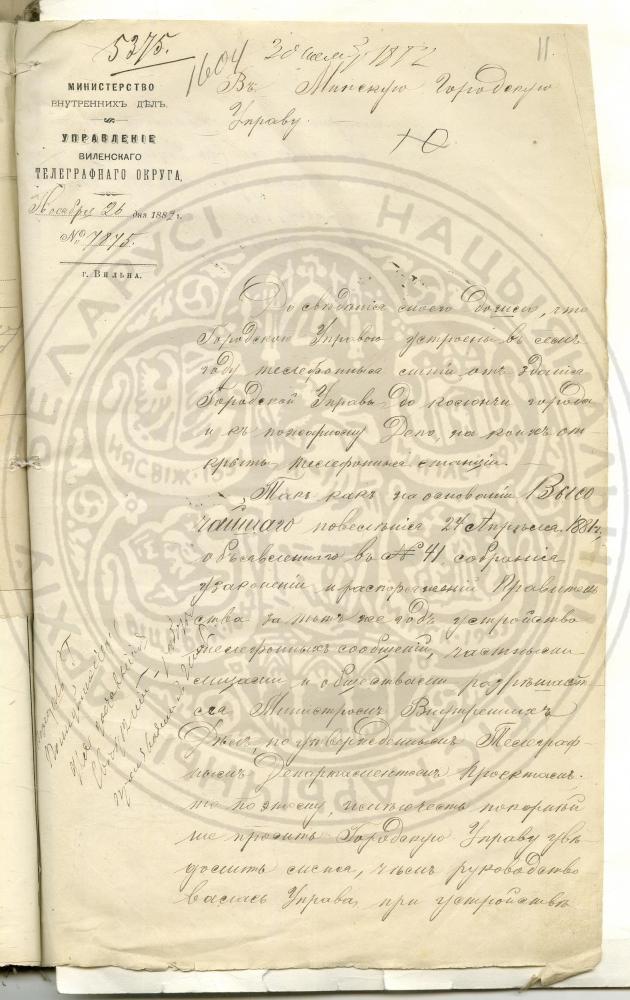 5375.
1604
11
МИНИСТЕРСТВО
ВНУТРЕННИХЪ ДѢЛЪ.
УПРАВЛЕНІЕ
ВИЛЕНСКАГО
ТЕЛЕГРАФНАГО ОКРУГА.
Ноября 26 дня 1882 г.
№ 7875.
г. Вильна.
Въ Минскую Городскую
Управу.
До свѣдѣнія моего дошло, что
Городскою Управою устроены въ семъ
году телефонныя линіи отъ зданія
Городской Управы до каланчи города
и къ пожарному Депо, на коихъ от-
крыты телефонныя станціи.
Такъ какъ на основаніи Высо
чайшаго повелѣнія 24 Апрѣля 1881 г.
объявленнаго въ № 41 собранія
узаконеній и распоряженій Правитель
ства за тотъ же годъ, устройство
телефонныхъ сообщеній, частными
лицами и обществами разрѣшает
ся Министромъ Внутреннихъ
Дѣлъ, по утвержденнымъ Телеграф-
нымъ Департаментомъ проектамъ.
то по этому, имѣю честь покорнѣй
ше просить Городскую Управу увѣ
домить меня, чѣмъ руководство
валась Управа, при устройствѣ
НАЦЫЯНАЛЬНЫ
БЕЛАРУСІ
НЯСВІЖ